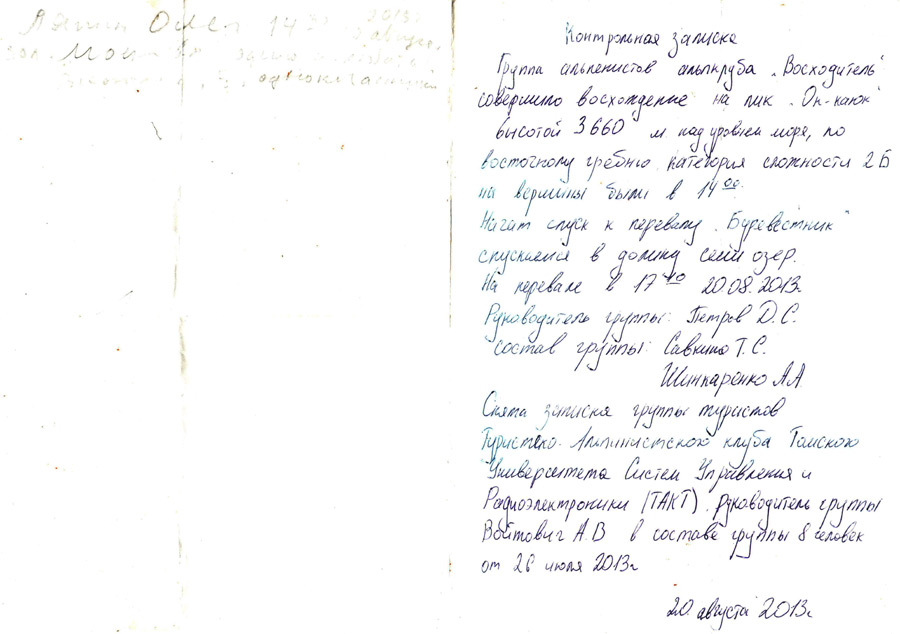 2013г
Олег 143
августа
Контрольная записка
Группа альпенистов альпклуба "Восходитель"
совершило восхождение на пик "Он-каюк"
высотой 3660 м над уровнем моря, по
восточному гребню категория сложности 2Б
на вершины были в 14 00.
Начат спуск к перевалу "Буревестник"
спускаемся в долину семи озер.
На перевале в 17 40 20.08.2013г.
Руководитель группы: Петров Д.С.
состав группы: Савкина Т.С.
Шинкаренко А.А.
Снята записка группы туристов
Туристско-Альпинистского клуба Томского
Университета Систем Управления и
Радиоэлектроники (ТАКТ). руководитель группы
Войтович А.В в составе группы 8 человек
от 26 июля 2013г
20 августа 2013г.